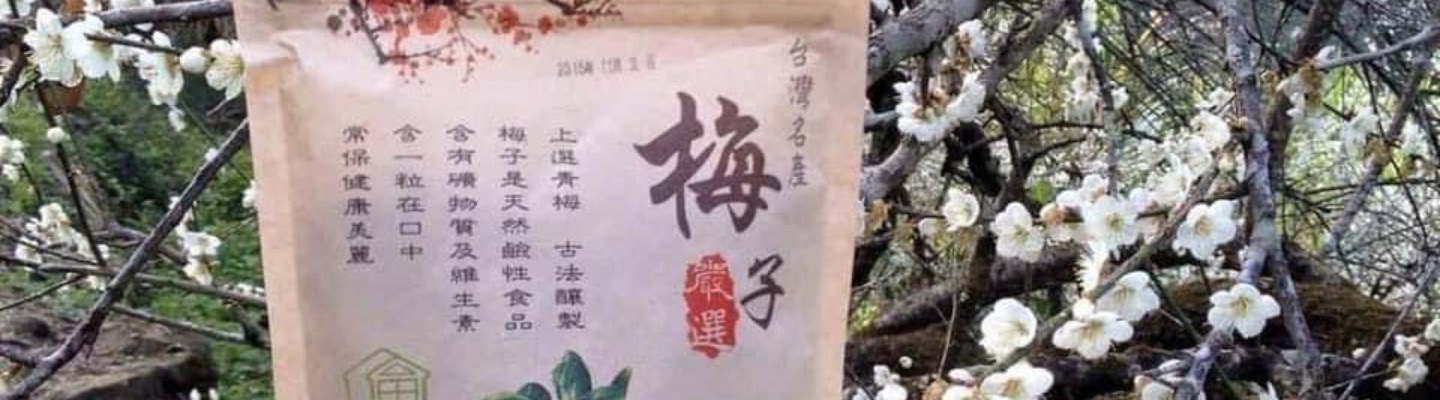 台灣名產
梅子
嚴選
上選青梅 古法釀製
梅子是天然鹼性食品
含有礦物質及維生素
含一粒在口中
常保健康美麗